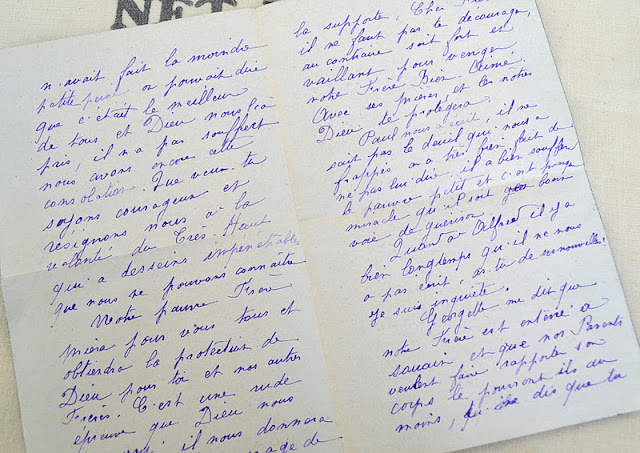 NET
n'avait fait la moindre
petite peine on pouvait dire
que c'était le meilleur
de tous et Dieu nous l'a
pris, il n'a pas souffert
nous avons encore cette
consolation. Que veux-tu
soyons courageux et
résignons nous à la
volonté du Très-Haut
qui a desseins impénétrables
que nous ne pouvons connaitre
Notre pauvre Frère
priera pour vous tous et
obtiendra la protection de
Dieu pour toi et nos autres
Frères. C'est une rude
épreuve que Dieu nous
il nous donnera
de
la supporte, Cher Frère
il ne faut pas te décourager,
au contraire soit fort et
vaillant pour venger
notre Frère Bien-Aimé.
Avec ses prières, et les notres
Dieu te protègera.
Paul nous a écrit, il ne
sait pas le deuil qui nous a
frappés on a très bien fait de
ne pas lui dire, il a bien souffert
le pauvre petit et c'est presque
miracle qu'il soit en bonne
voie de guérison.
Quand à Alfred il y a
bien longtemps qu'il ne nous
a pas écrit, as-tu de ses nouvelles?
Je suis inquiète.
Georgette me dit que
notre Frère est enterré à
et que nos Parents
veulent faire rapporter son
corps le pourront ils au
moins, tu me dis que ta